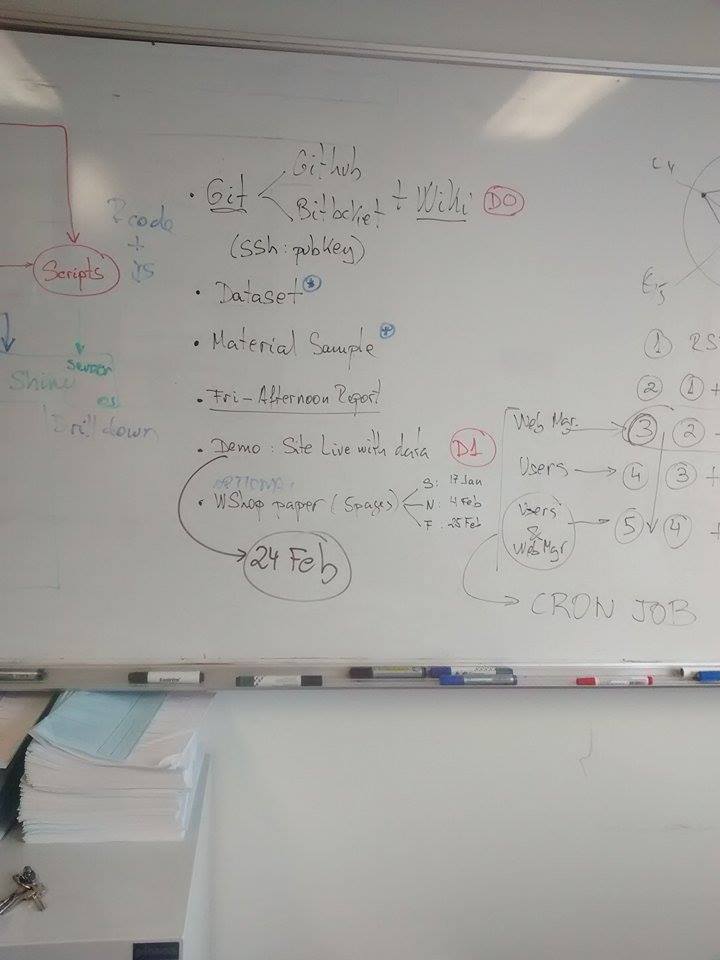 Scripts
R code
+
JS
Shiny
server
Drill down
• Git
Github
Bitbcket
+ Wiki
D0
(ssh: pubkey)
• Dataset *
• Material Sample *
• Fri-Afternoon Report
• Demo: Site Live with data D1
OPTIONAL:
• WShop paper (5pages)
S: 17 Jan
N: 4 Feb
F: 25 Feb
24 Feb
C4
E5
① RS
② ① +
Web Mgr. ③ ②
Users ④ ③ +
Users
&
Web Mgr
⑤ ④ +
CRON JOB